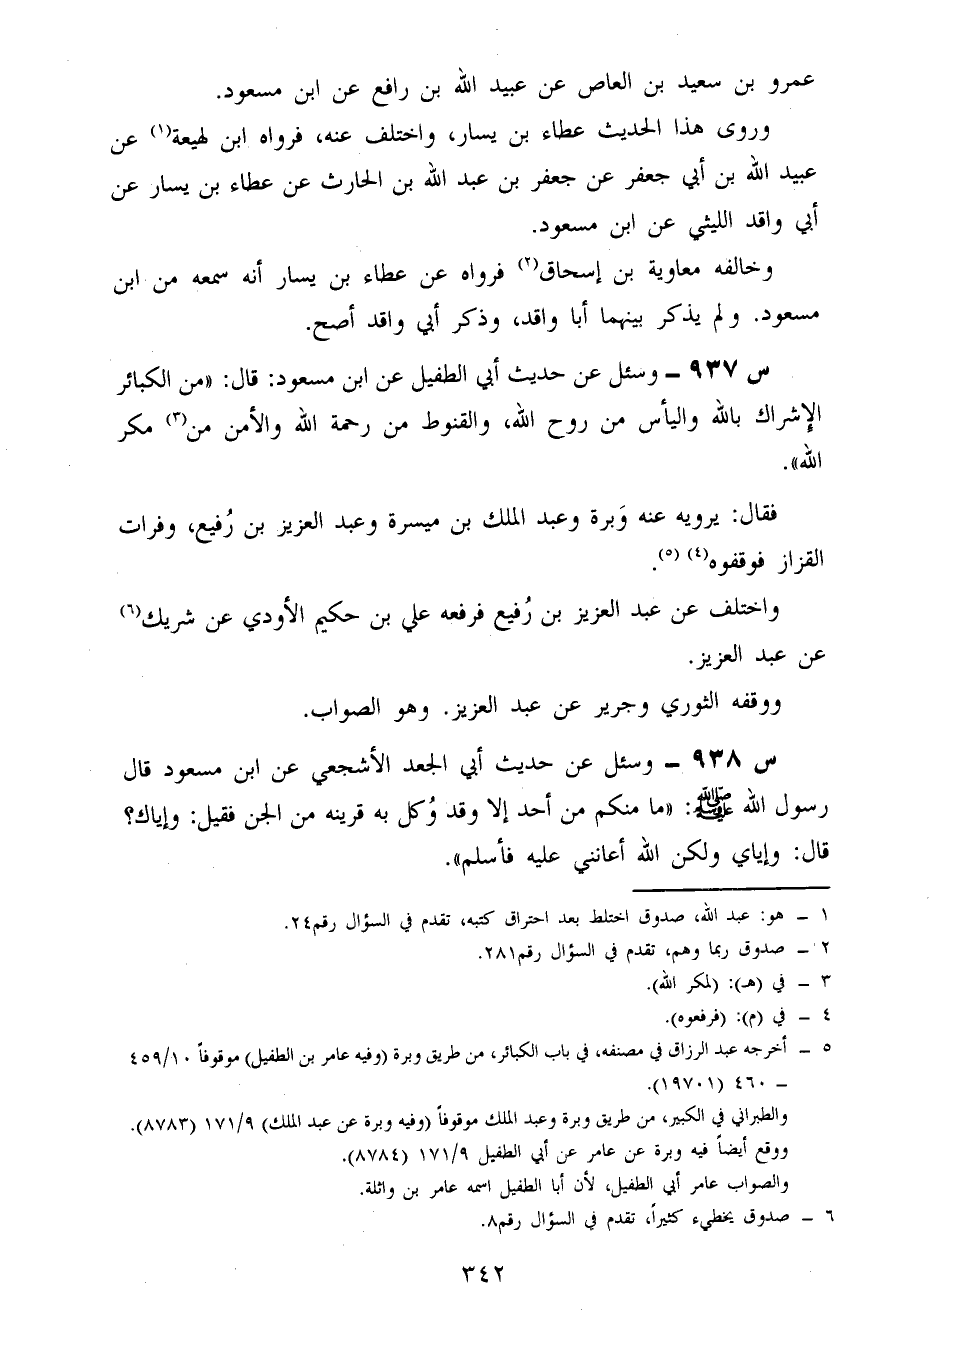 عمرو بن سعيد بن العاص عن عبيد الله بن رافع عن ابن مسعود.
وروى هذا الحديث عطاء بن يسار، واختلف عنه، فرواه ابن لهيعة(١) عن
عبيد الله بن أبي جعفر عن جعفر بن عبد الله بن الحارث عن عطاء بن يسار عن
أبي واقد الليثي عن ابن مسعود.
وخالفه معاوية بن إسحاق(٢) فرواه عن عطاء بن يسار أنه سمعه من ابن
مسعود. ولم يذكر بينهما أبا واقد، وذكر أبي واقد أصح.
س ٩٣٧ ـ وسئل عن حديث أبي الطفيل عن ابن مسعود: قال: «من الكبائر
الإشراك بالله واليأس من روح الله، والقنوط من رحمة الله والأمن من(٣) مكر
الله».
فقال: يرويه عنه وَبرة وعبد الملك بن ميسرة وعبد العزيز بن رُفيع، وفرات
القزاز فوقفوه(٤) (٥).
واختلف عن عبد العزيز بن رُفيع فرفعه علي بن حكيم الأودي عن شريك(٦)
عن عبد العزيز.
ووقفه الثوري وجرير عن عبد العزيز. وهو الصواب.
س ٩٣٨ ـ وسئل عن حديث أبي الجعد الأشجعي عن ابن مسعود قال
رسول الله ﷺ: «ما منكم من أحد إلا وقد وُكل به قرينه من الجن فقيل: وإياك؟
قال: وإياي ولكن الله أعانني عليه فأسلم».
١ ـ هو: عبد الله، صدوق اختلط بعد احتراق كتبه، تقدم في السؤال رقم٢٤.
٢ ـ صدوق ربما وهم، تقدم في السؤال رقم٢٨١.
٣ ـ في (هـ): (لمكر الله).
٤ ـ في (م): (فرفعوه).
٥ ـ أخرجه عبد الرزاق في مصنفه، في باب الكبائر، من طريق وبرة (وفيه عامر بن الطفيل) موقوفاً ٤٥٩/١٠
ـ ٤٦٠ (١٩٧٠١).
والطبراني في الكبير، من طريق وبرة وعبد الملك موقوفاً (وفيه وبرة عن عبد الملك) ١٧١/٩ (٨٧٨٣).
ووقع أيضاً فيه وبرة عن عامر عن أبي الطفيل ١٧١/٩ (٨٧٨٤).
والصواب عامر أبي الطفيل، لأن أبا الطفيل اسمه عامر بن واثلة.
٦ ـ صدوق يخطيء كثيراً، تقدم في السؤال رقم٨.
٣٤٢